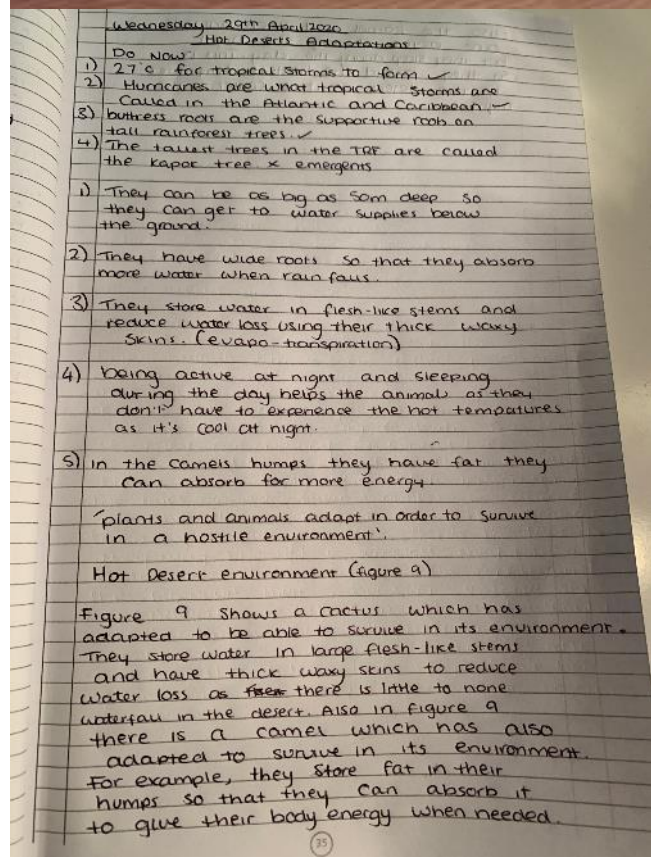 Wednesday 29th April 2020
Hot Deserts Adaptations
Do Now
1) 27°c for tropical storms to form ✓
2) Hurricanes are what tropical storms are
called in the Atlantic and Caribbean. ✓
3) buttress roots are the supportive roots on
tall rainforest trees. ✓
4) The tallest trees in the TRF are called
the kapok tree x emergents
1) They can be as big as 50m deep so
they can get to water supplies below
the ground.
2) They have wide roots so that they absorb
more water when rain falls.
3) They store water in flesh-like stems and
reduce water loss using their thick waxy
skins. (evapo-transpiration)
4) being active at night and sleeping
during the day helps the animals as they
don't have to experience the hot tempatures
as it's cool at night.
5) in the camels humps they have fat they
can absorb for more energy.
'plants and animals adapt in order to survive
in a hostile environment'.
Hot Desert environment (figure 9)
Figure 9 shows a cactus which has
adapted to be able to survive in its environment.
They store water in large flesh-like stems
and have thick waxy skins to reduce
water loss as there is little to none
waterfall in the desert. Also in figure 9
there is a camel which has also
adapted to survive in its environment.
For example, they store fat in their
humps so that they can absorb it
to give their body energy when needed.
35